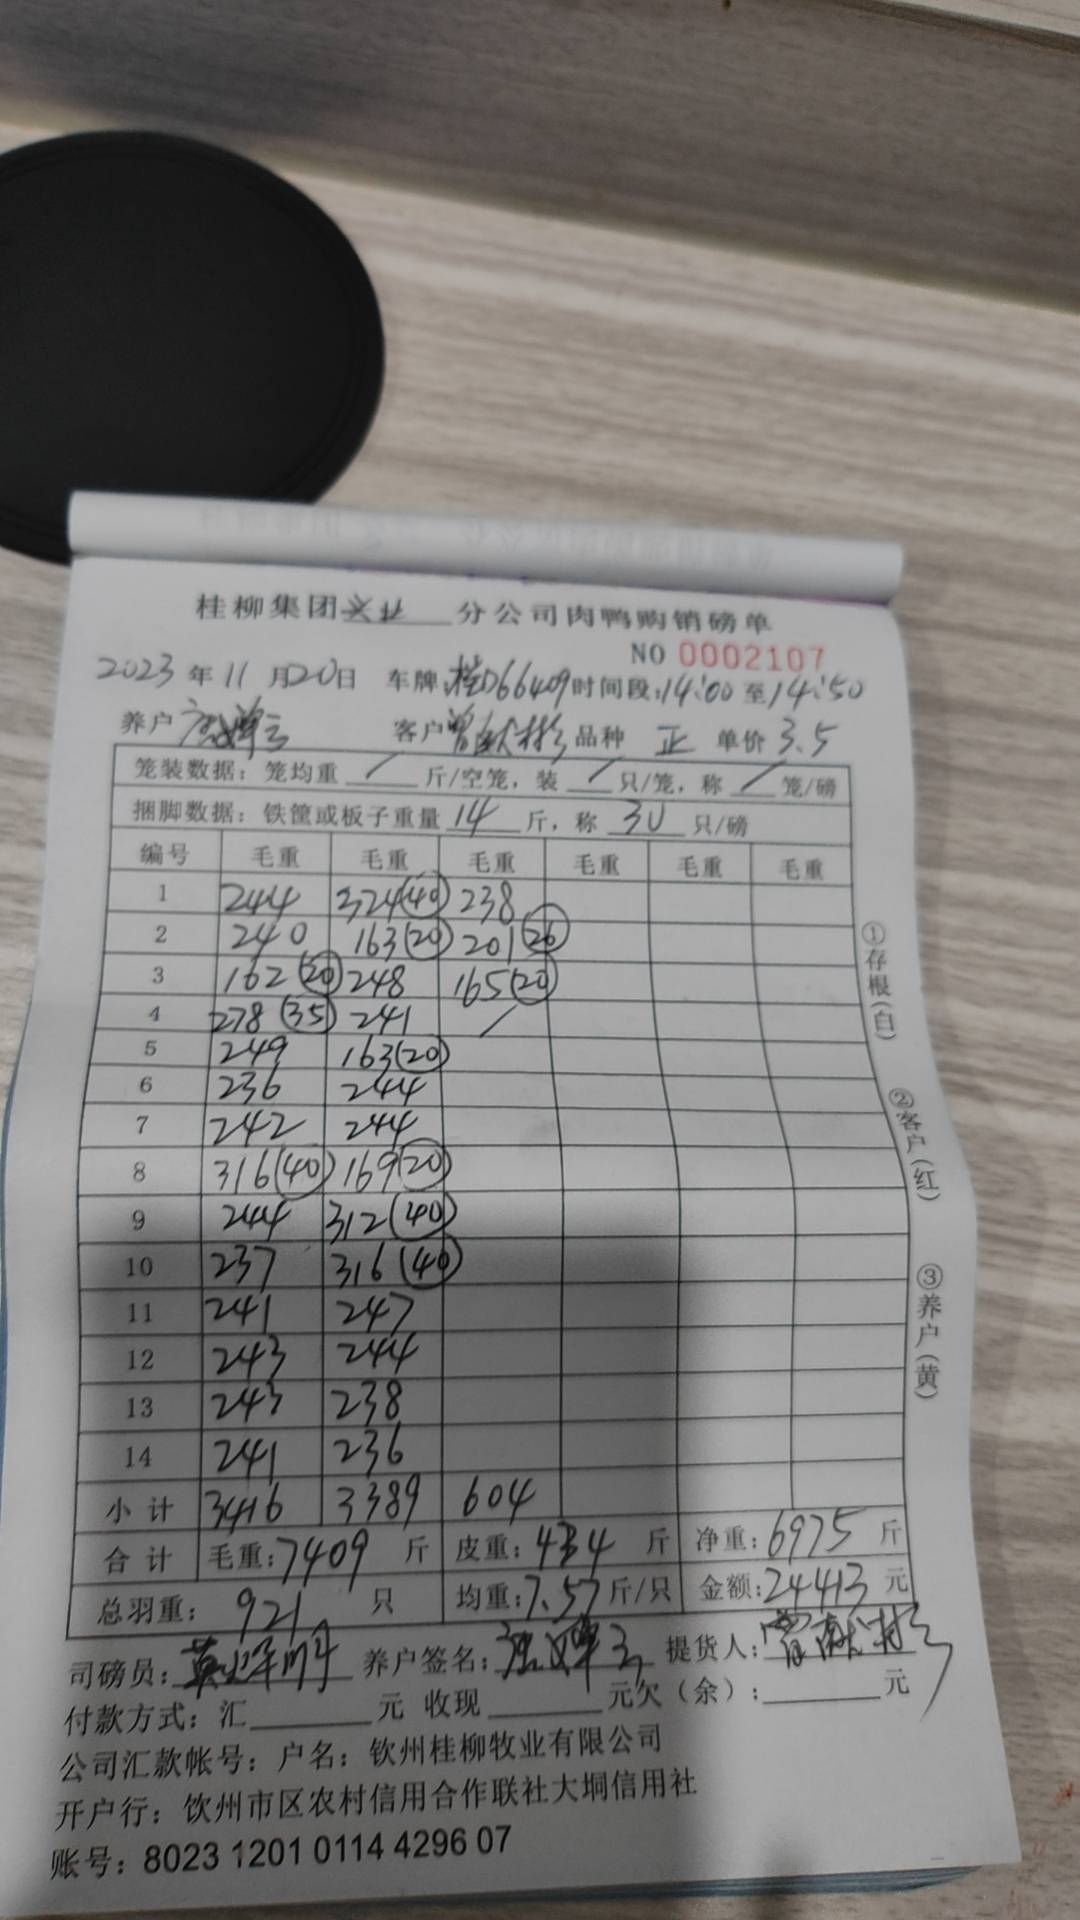 桂柳集团兴业分公司肉鸭购销磅单
NO 0002107
2023年11月20日 车牌:桂D66409时间段:14:00至14:50
养户 客户曾献彬 品种 正 单价 3.5
笼装数据：笼均重 / 斤/空笼，装 / 只/笼，称 / 笼/磅
捆脚数据：铁筐或板子重量 14 斤，称 30 只/磅
编号 毛重 毛重 毛重 毛重 毛重 毛重
1 244 324(40) 238
2 240 163(20) 201(26)
3 162(20) 248 165(20)
4 278(35) 241 /
5 249 163(20)
6 236 244
7 242 244
8 316(40) 169(20)
9 244 312(40)
10 237 316(40)
11 241 247
12 243 244
13 243 238
14 241 236
小计 3416 3389 604
合计 毛重:7409 斤 皮重:434 斤 净重:6975 斤
总羽重: 921 只 均重:7.57斤/只 金额:24413 元
司磅员: 养户签名: 提货人:曾献彬
付款方式：汇____元 收现____元欠（余）:____元
公司汇款帐号：户名：钦州桂柳牧业有限公司
开户行：钦州市区农村信用合作联社大垌信用社
账号：8023 1201 0114 4296 07
①存根(白)
②客户(红)
③养户(黄)